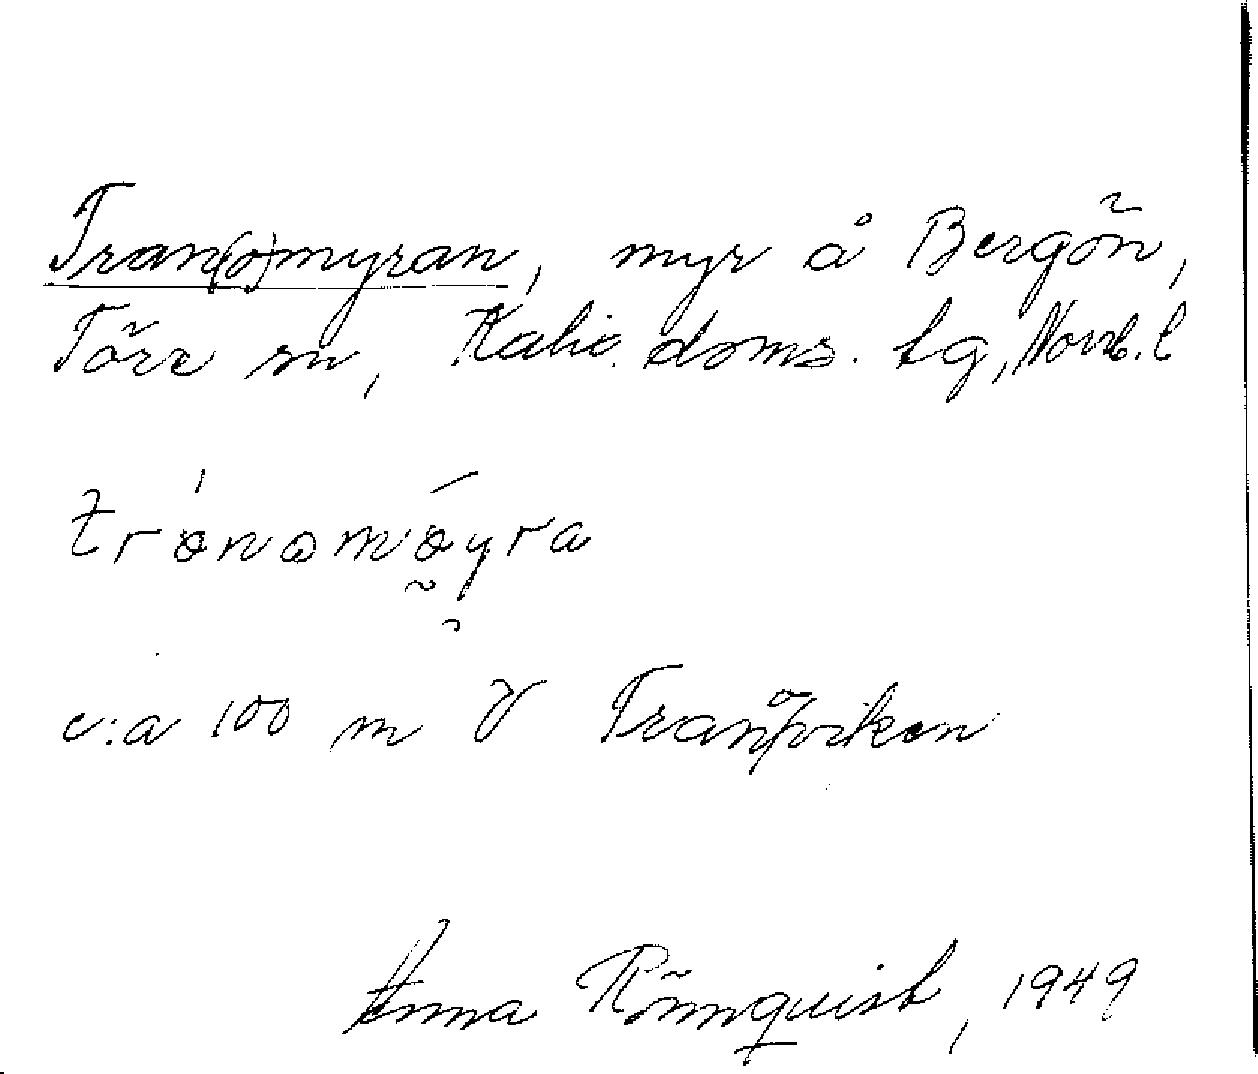 Tran(o)myran, myr å Bergön,
Töre sn, Kalix doms. lg, Norrb. l
tránomǿyra
c:a 100 m V Tranöviken
Anna Rönnquist, 1949